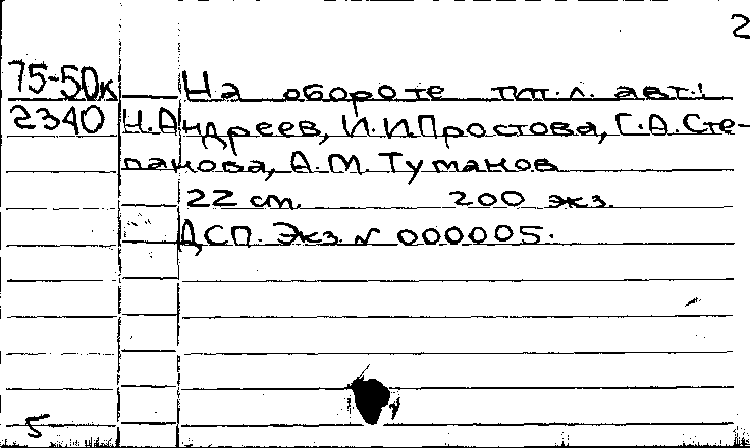 2
75-50к На обороте тит.л. авт.:
2340 Н.Андреев, И.И.Простова, Г.А.Сте-
панова, А.М.Туманов
22 см. 200 экз.
ДСП. Экз. № 000005.
5